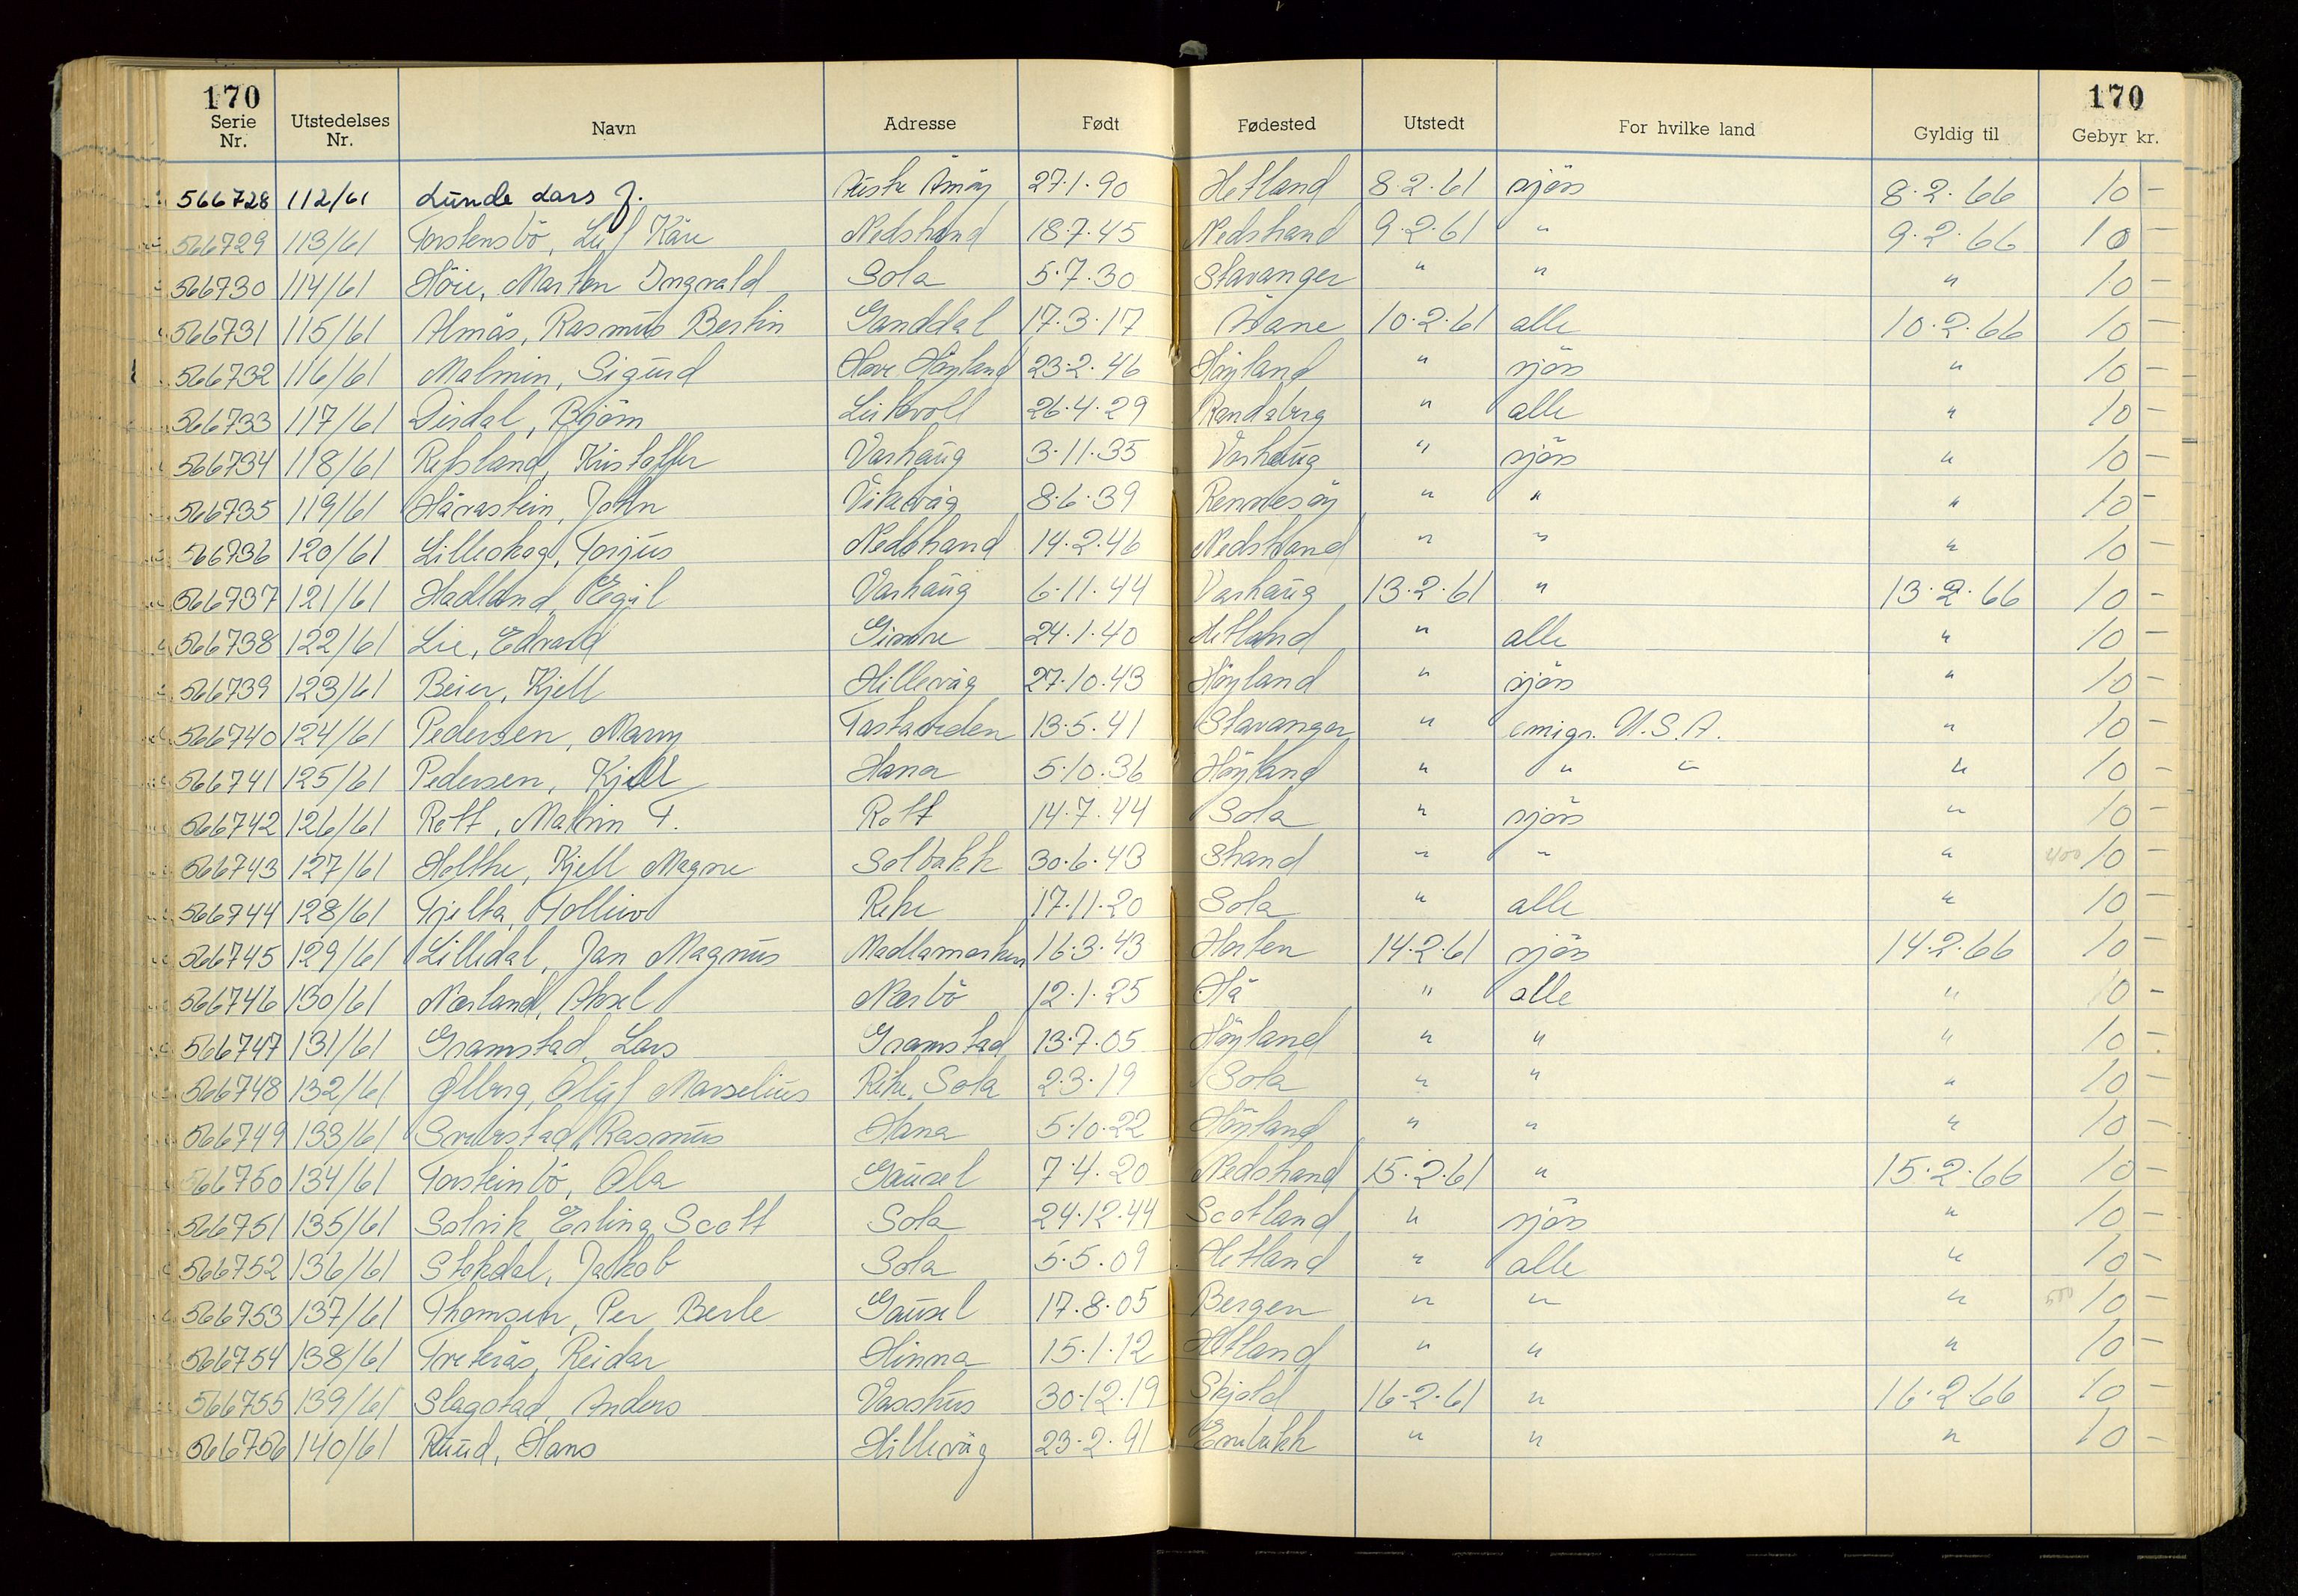 170 170
Serie Nr. Utstedelses Nr. Navn Adresse Født Fødested Utstedt For hvilke land Gyldig til Gebyr kr.
566728 112/61 Lunde Lars J. Åmöy 27.1.90 Hetland 8.2.61 sjös 8.2.66 10 -
566729 113/61 Torstensbö, Leif Kåre Nedstrand 18.7.45 Nedstrand 9.2.61 " 9.2.66 10 -
566730 114/61 Höie, Marton Ingvald Sola 5.7.30 Stavanger " " " 10 -
566731 115/61 Almås, Rasmus Bertin Ganddal 17.3.17 Åsane 10.2.61 alle 10.2.66 10 -
566732 116/61 Malmin, Sigurd Hove Höyland 23.2.46 Höyland " sjös " 10 -
566733 117/61 Dirdal, Björn Leikvoll 26.4.29 Randaberg " alle " 10 -
566734 118/61 Refsland, Kristoffer Varhaug 3.11.35 Varhaug " sjös " 10 -
566735 119/61 Håvastein, John Vikevåg 8.6.39 Rennesöy " " " 10 -
566736 120/61 Lilleskog, Torjus Nedstrand 14.2.46 Nedstrand " " " 10 -
566737 121/61 Hadland, Egil Varhaug 6.11.44 Varhaug 13.2.61 " 13.2.66 10 -
566738 122/61 Lie, Edvard Gimre 24.1.40 Hetland " alle " 10 -
566739 123/61 Beier, Kjell Hillevåg 27.10.43 Höyland " sjös " 10 -
566740 124/61 Pedersen, Marry Tastaveden 13.5.41 Stavanger " emigr. U.S.A. " 10 -
566741 125/61 Pedersen, Kjell Hana 5.10.36 Höyland " " " " 10 -
566742 126/61 Rott, Malvin T. Rott 14.7.44 Sola " sjös " 10 -
566743 127/61 Holthe, Kjell Magne Solbakk 30.6.43 Strand " " " 400 10 -
566744 128/61 Tjelta, Tolleiv Reke 17.11.20 Sola " alle " 10 -
566745 129/61 Lilledal, Jan Magnus Madlamarken 16.3.43 Horten 14.2.61 sjös 14.2.66 10 -
566746 130/61 Nærland, Aksel Nærbö 12.1.25 Hå " alle " 10 -
566747 131/61 Gramstad, Lars Gramstad 13.7.05 Höyland " " " 10 -
566748 132/61 Ølberg, Oluf Marselius Reke, Sola 2.3.19 Sola " " " 10 -
566749 133/61 Sverstad, Rasmus Hana 5.10.22 Höyland " " " 10 -
566750 134/61 Torsteinbö, Ola Gausel 7.4.20 Nedstrand 15.2.61 " 15.2.66 10 -
566751 135/61 Solvik, Erling Scott Sola 24.12.44 Scotland " sjös " 10 -
566752 136/61 Stokdal, Jakob Sola 5.5.09 Hetland " alle " 10 -
566753 137/61 Thomsen, Per Berle Gausel 17.8.05 Bergen " " " 500 10 -
566754 138/61 Tveterås, Reidar Hinna 15.1.12 Hetland " " " 10 -
566755 139/61 Slagstad, Anders Vasshus 30.12.19 Skjold 16.2.61 " 16.2.66 10 -
566756 140/61 Ruud, Hans Hillevåg 23.2.91 Enebakk " " " 10 -